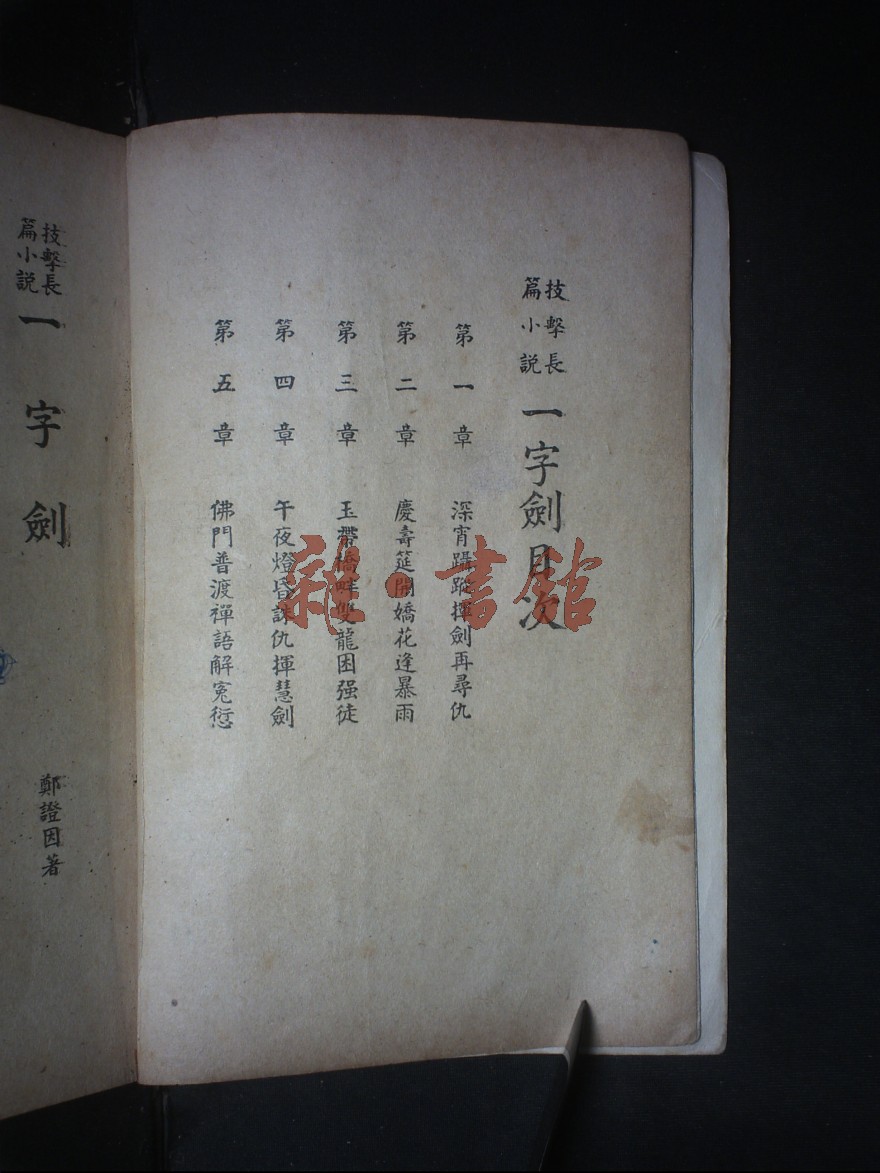 技擊長篇小說 一字劍目次
第一章 深宵躡蹤揮劍再尋仇
第二章 慶壽筵開嬌花逢暴雨
第三章 玉帶橋畔雙龍困强徒
第四章 午夜燈昏誅仇揮慧劍
第五章 佛門普渡禪語解冤愆
技擊長篇小說 一字劍
鄭證因著
雜·書館